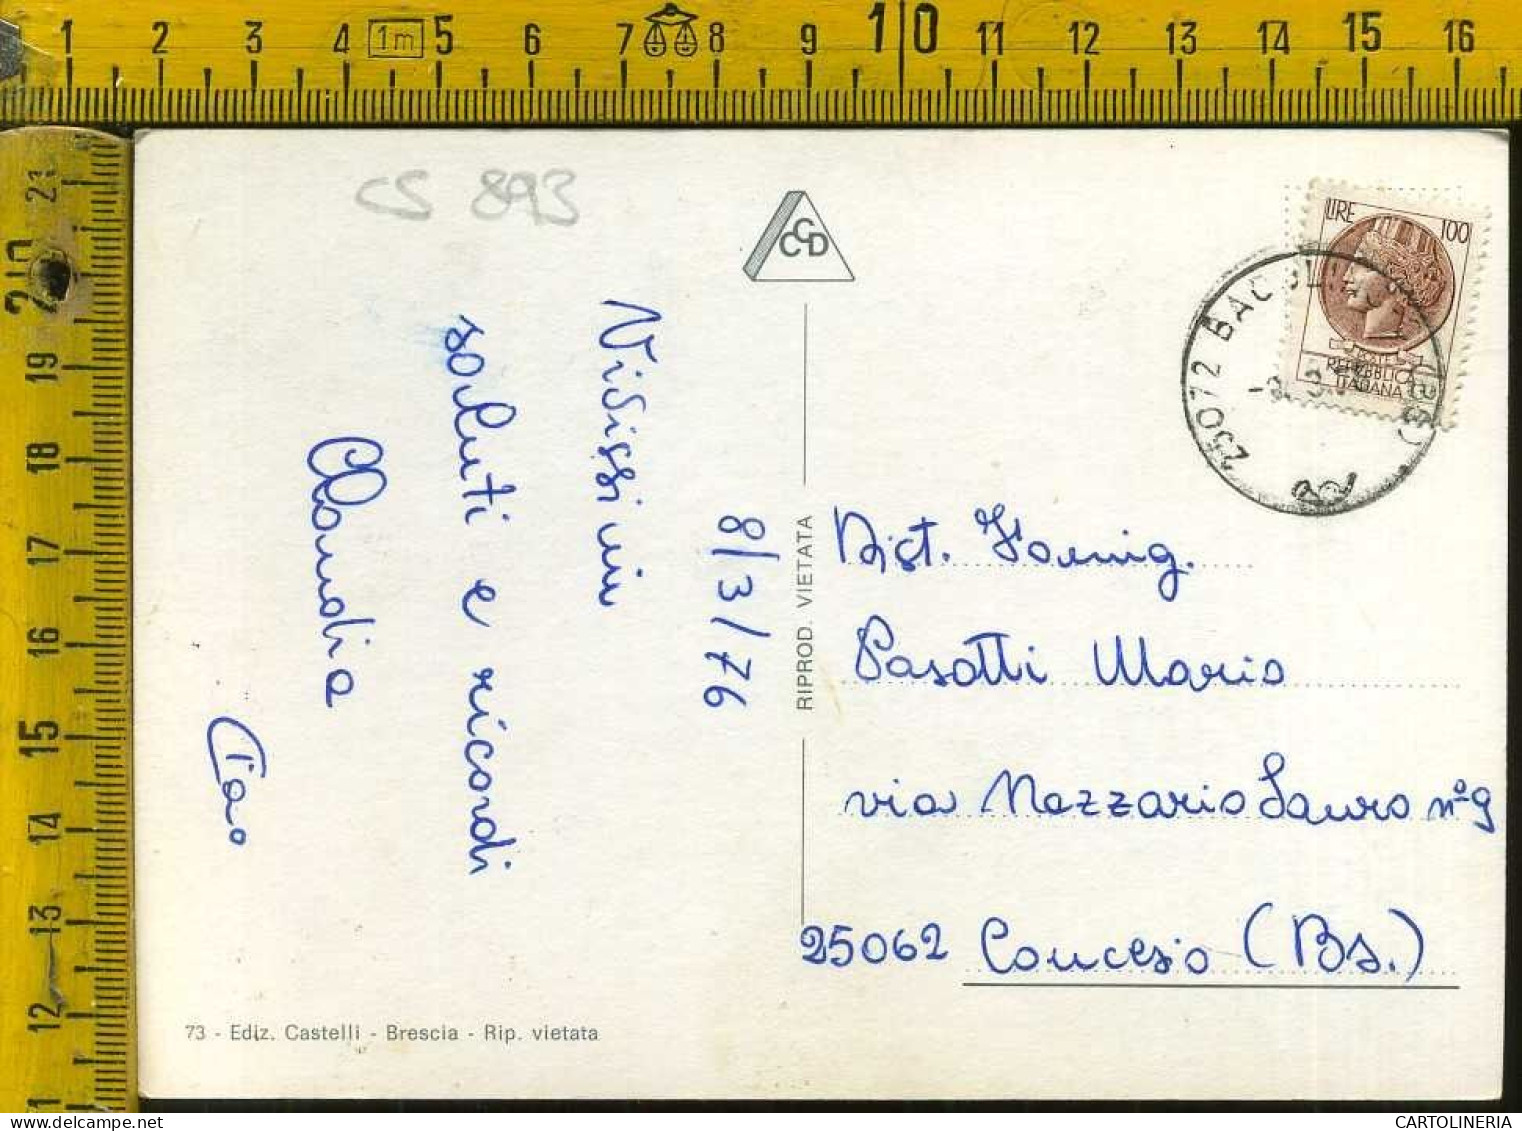 1 2 3 4 1m 5 6 7 8 9 10 11 12 13 14 15 16
21
20
19
18
17
16
15
14
13
12
CS 893
CCD
LIRE 100
REPUBBLICA
ITALIANA
25072 BAGOLINO (BS)
8/3/76
Vivissimi
saluti e ricordi
Claudia
Ciao
RIPROD. VIETATA
Dist. Famig.
Pasotti Mario
via Nazzario Sauro n° 9
25062 Concesio (Bs.)
73 - Ediz. Castelli - Brescia - Rip. vietata
CARTOLINERIA